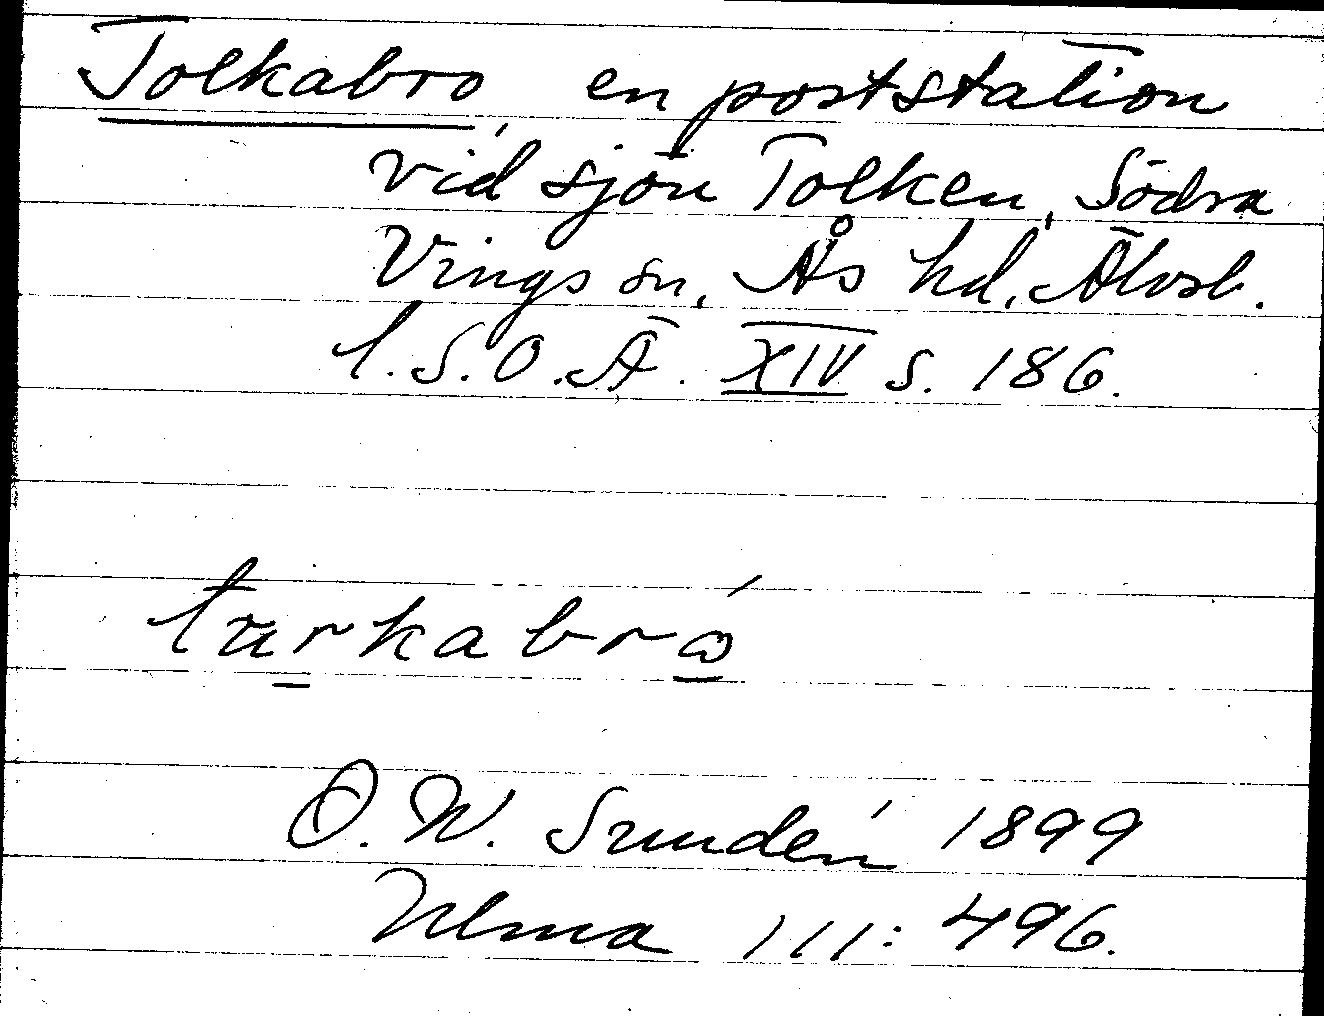 Tolkabro, en poststation
vid sjön Tolken, Södra
Vings sn, Ås hd, Älvsb.
l. S.O.Ä. XIV s. 186.
turkabró
D. W. Sundén 1899
Ulma 111: 496.